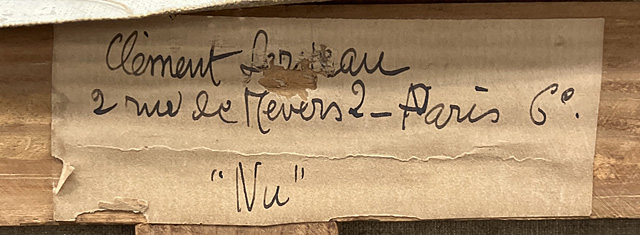 Clément
2 rue de Nevers 2 - Paris 6e.
"Nu"